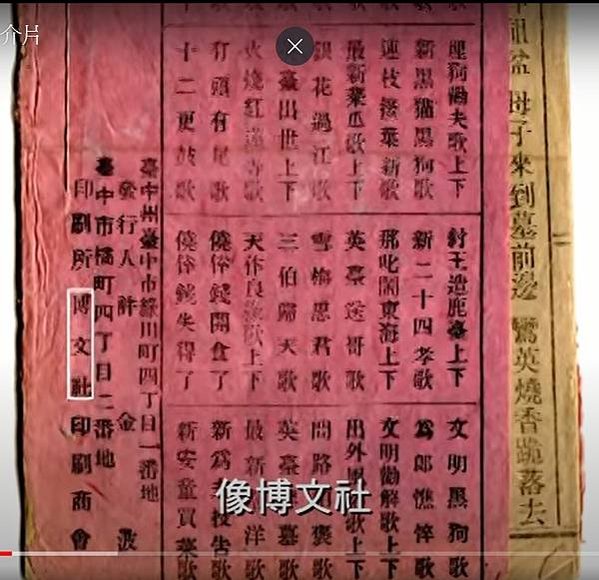 介片
祖盆 母子來到墓前邊 鸞英燒香跪落去
狗勸夫歌上下
新黑猫黑狗歌
連枝接葉新歌
最新菜瓜歌上下
花過江歌
臺出世上下
火燒紅蓮寺歌
有頭有尾歌
十二更鼓歌
紂王造鹿臺上下
新二十四孝歌
那叱鬧東海上下
英臺送哥歌
雪梅思君歌
三伯歸天歌
天作良緣歌上下
僥倖錢開食了
僥倖錢失得了
文明黑狗歌
為郎憔悴歌
文明勸解歌上下
出外歌上下
問路褒歌
英臺墓歌
最新洋歌
新為歌
新安童買菜歌
臺中州臺中市綠川町四丁目一番地
發行人 許金波
臺中市橘町四丁目二番地
印刷所 博文社印刷商會
像博文社